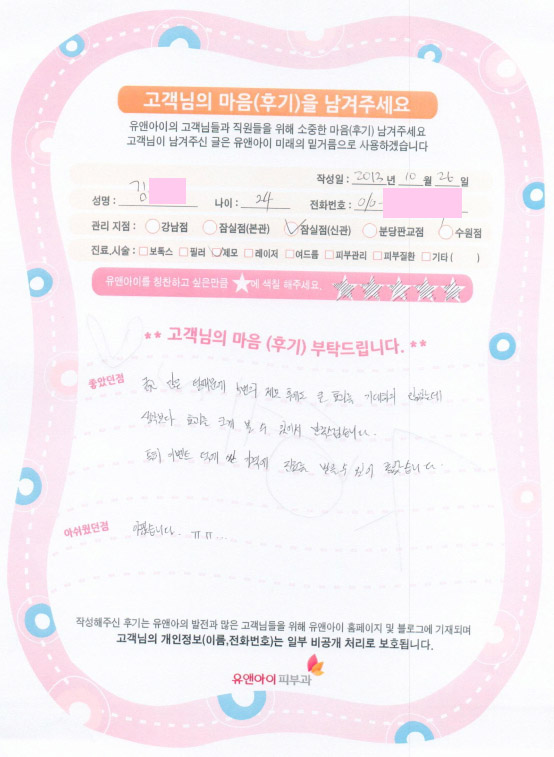 고객님의 마음(후기)을 남겨주세요
유앤아이의 고객님들과 직원들을 위해 소중한 마음(후기) 남겨주세요
고객님이 남겨주신 글은 유앤아이 미래의 밑거름으로 사용하겠습니다
작성일 : 2013 년 10 월 26 일
성명 : 김 나이 : 24 전화번호 : 010-
관리 지점 : 강남점 잠실점(본관) 잠실점(신관) 분당판교점 수원점
진료,시술 : 보톡스 필러 제모 레이저 여드름 피부관리 피부질환 기타 ( )
유앤아이를 칭찬하고 싶은만큼 ★에 색칠 해주세요.
** 고객님의 마음 (후기) 부탁드립니다. **
좋았던점
제모 후에도 큰 효과를 기대하지 않았는데
생각보다 효과를 크게 볼 수 있어서 만족합니다.
이벤트 덕에 싼 가격에 받을 수 있어 좋았습니다.
아쉬웠던점 아픕습니다. ㅠㅠ....
작성해주신 후기는 유앤아의 발전과 많은 고객님들을 위해 유앤아이 홈페이지 및 블로그에 기재되며
고객님의 개인정보(이름,전화번호)는 일부 비공개 처리로 보호됩니다.
유앤아이 피부과